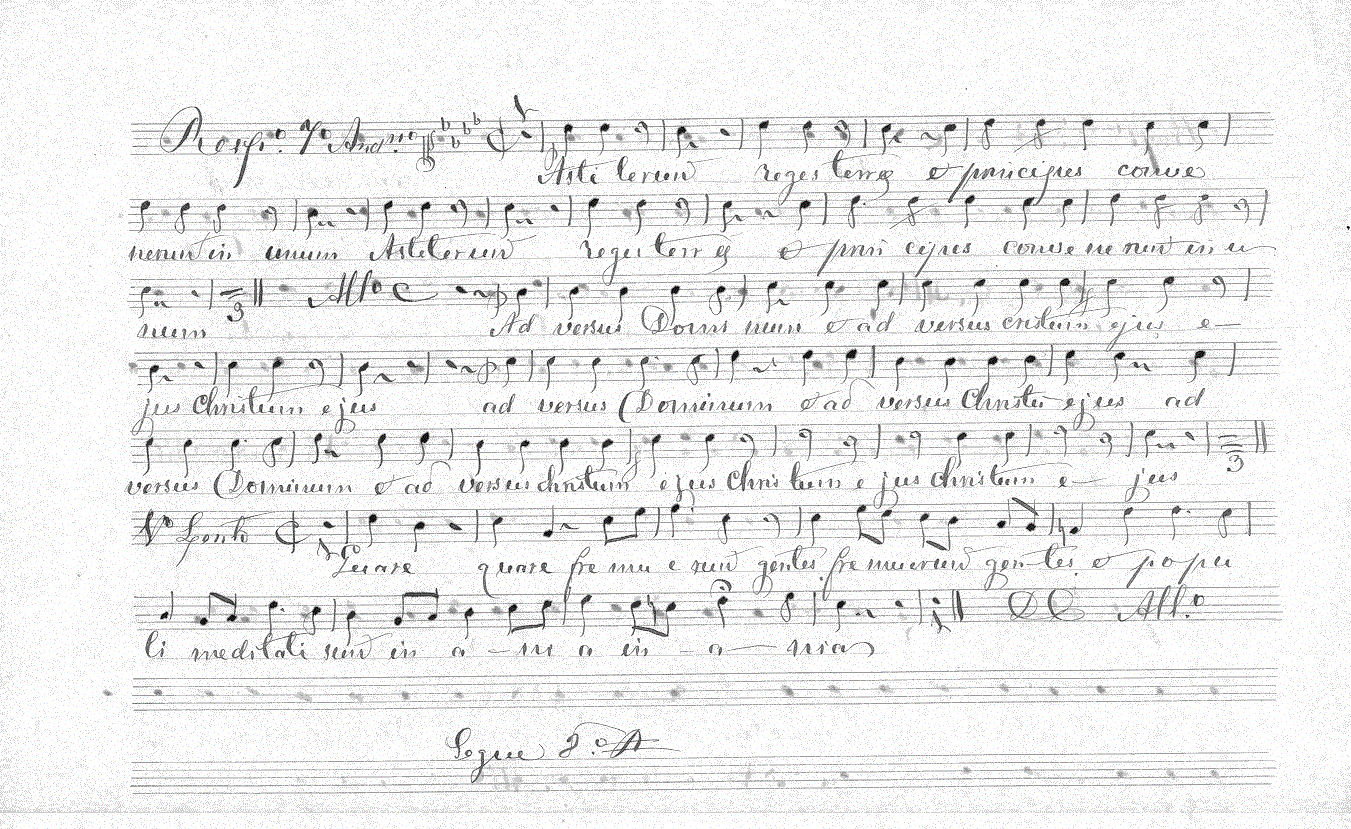 Resp.º 7º And.no
Astiterunt reges terræ et principes conve
nerunt in unum Astiterunt reges terræ et prin cipes convenerunt in u
3 All.o C
num Ad versus Domi num et ad versus cristum ejus e-
jus Christum ejus ad versus Dominum et ad versus Christũ ejus ad
3
versus Dominum et ad versus christum ejus Christum e jus Christum e- jus
Vº Lento
Quare quare fre mu e runt gentes fre muerunt gen-tes et popu
DC All.o
li meditati sunt in a-ni a in-a-nia
Segue 2.º